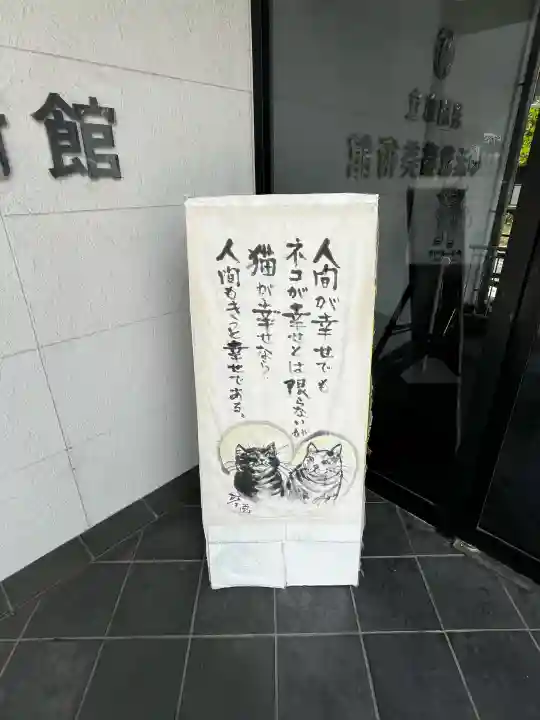 人間が幸せでも
ネコが幸せとは限らないが
猫が幸せなら、
人間もきっと幸せである。
館